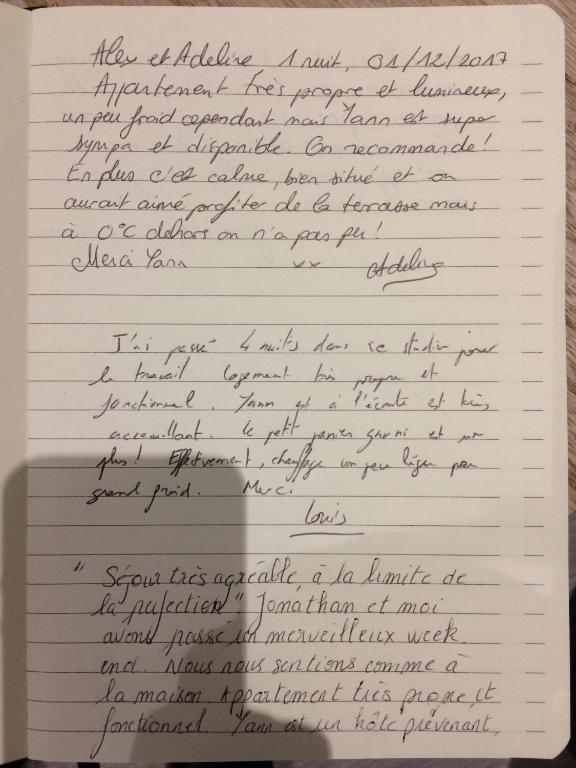 Alex et Adeline 1 nuit, 01/12/2017
Appartement très propre et lumineux,
un peu froid cependant mais Yann est super
sympa et disponible. On recommande!
En plus c'est calme, bien situé et on
aurait aimé profiter de la terrasse mais
à 0°C dehors on n'a pas pu!
Merci Yann xx Adeline
J'ai passé 4 nuits dans ce studio pour
le travail logement très propre et
fonctionnel. Yann est à l'écoute et très
accueillant. Le petit panier garni est un
plus! Effectivement, chauffage un peu léger par
grand froid. Merci
Louis
" Séjour très agréable, à la limite de
la perfection". Jonathan et moi
avons passé un merveilleux week
end. Nous nous sentions comme à
la maison. Appartement très propre, et
fonctionnel. Yann est un hôte prévenant,